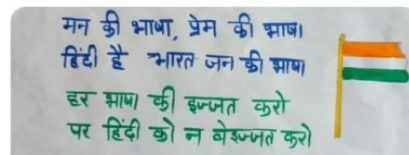 मन की भाषा, प्रेम की भाषा।
हिंदी है भारत जन की भाषा
हर भाषा की इज्जत करो
पर हिंदी को न बेइज्जत करो